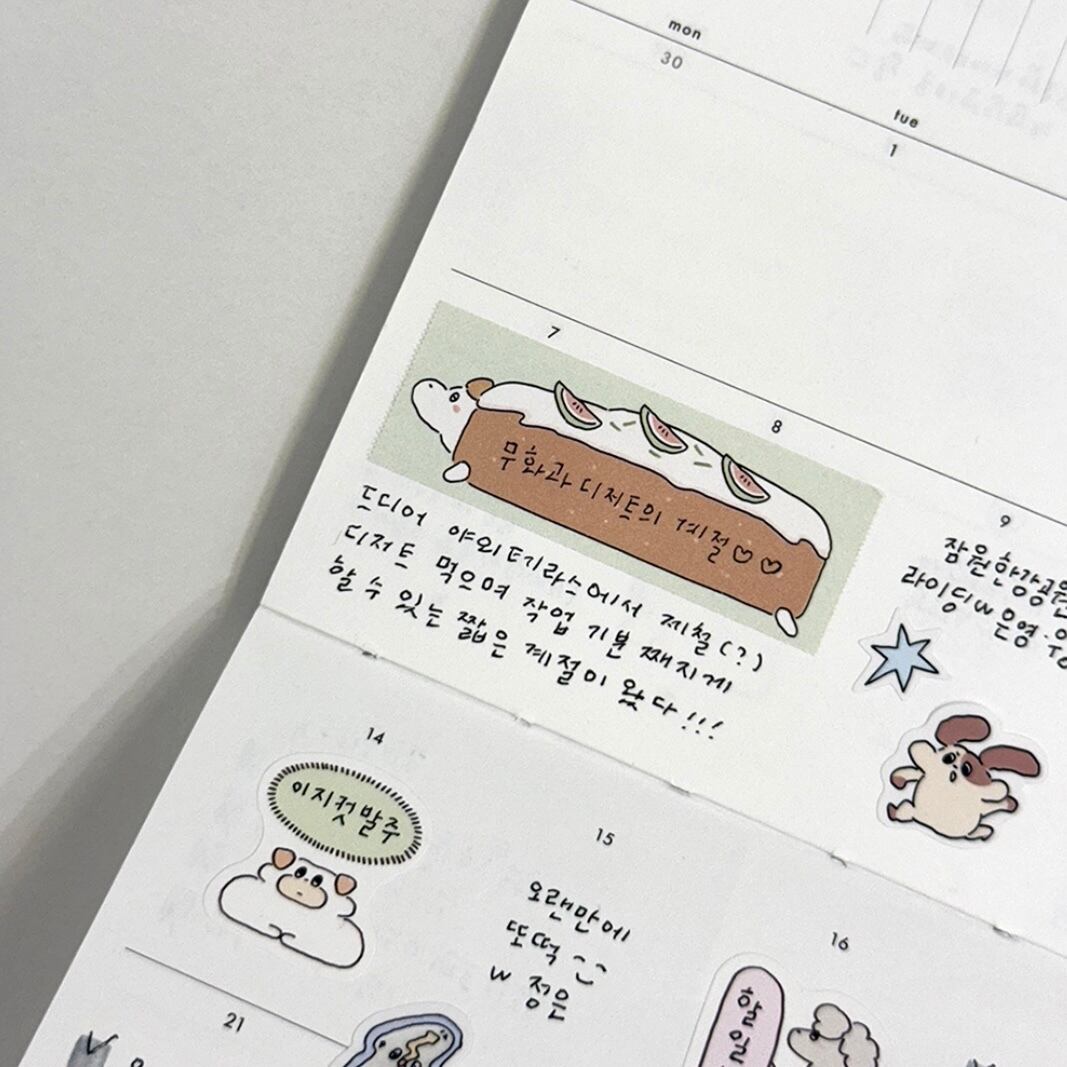 mon
30
tue
1
7
8
무화과 디저트의 계절♡♡
드디어 야외테라스에서 제철(?)
디저트 먹으며 작업 기분 째지게
할 수 있는 짧은 계절이 왔다!!!
9
잠원한강공원
라이딩 w 은영·
14
이지컷발주
15
오랜만에
또떡
w 정은
16
할일
21